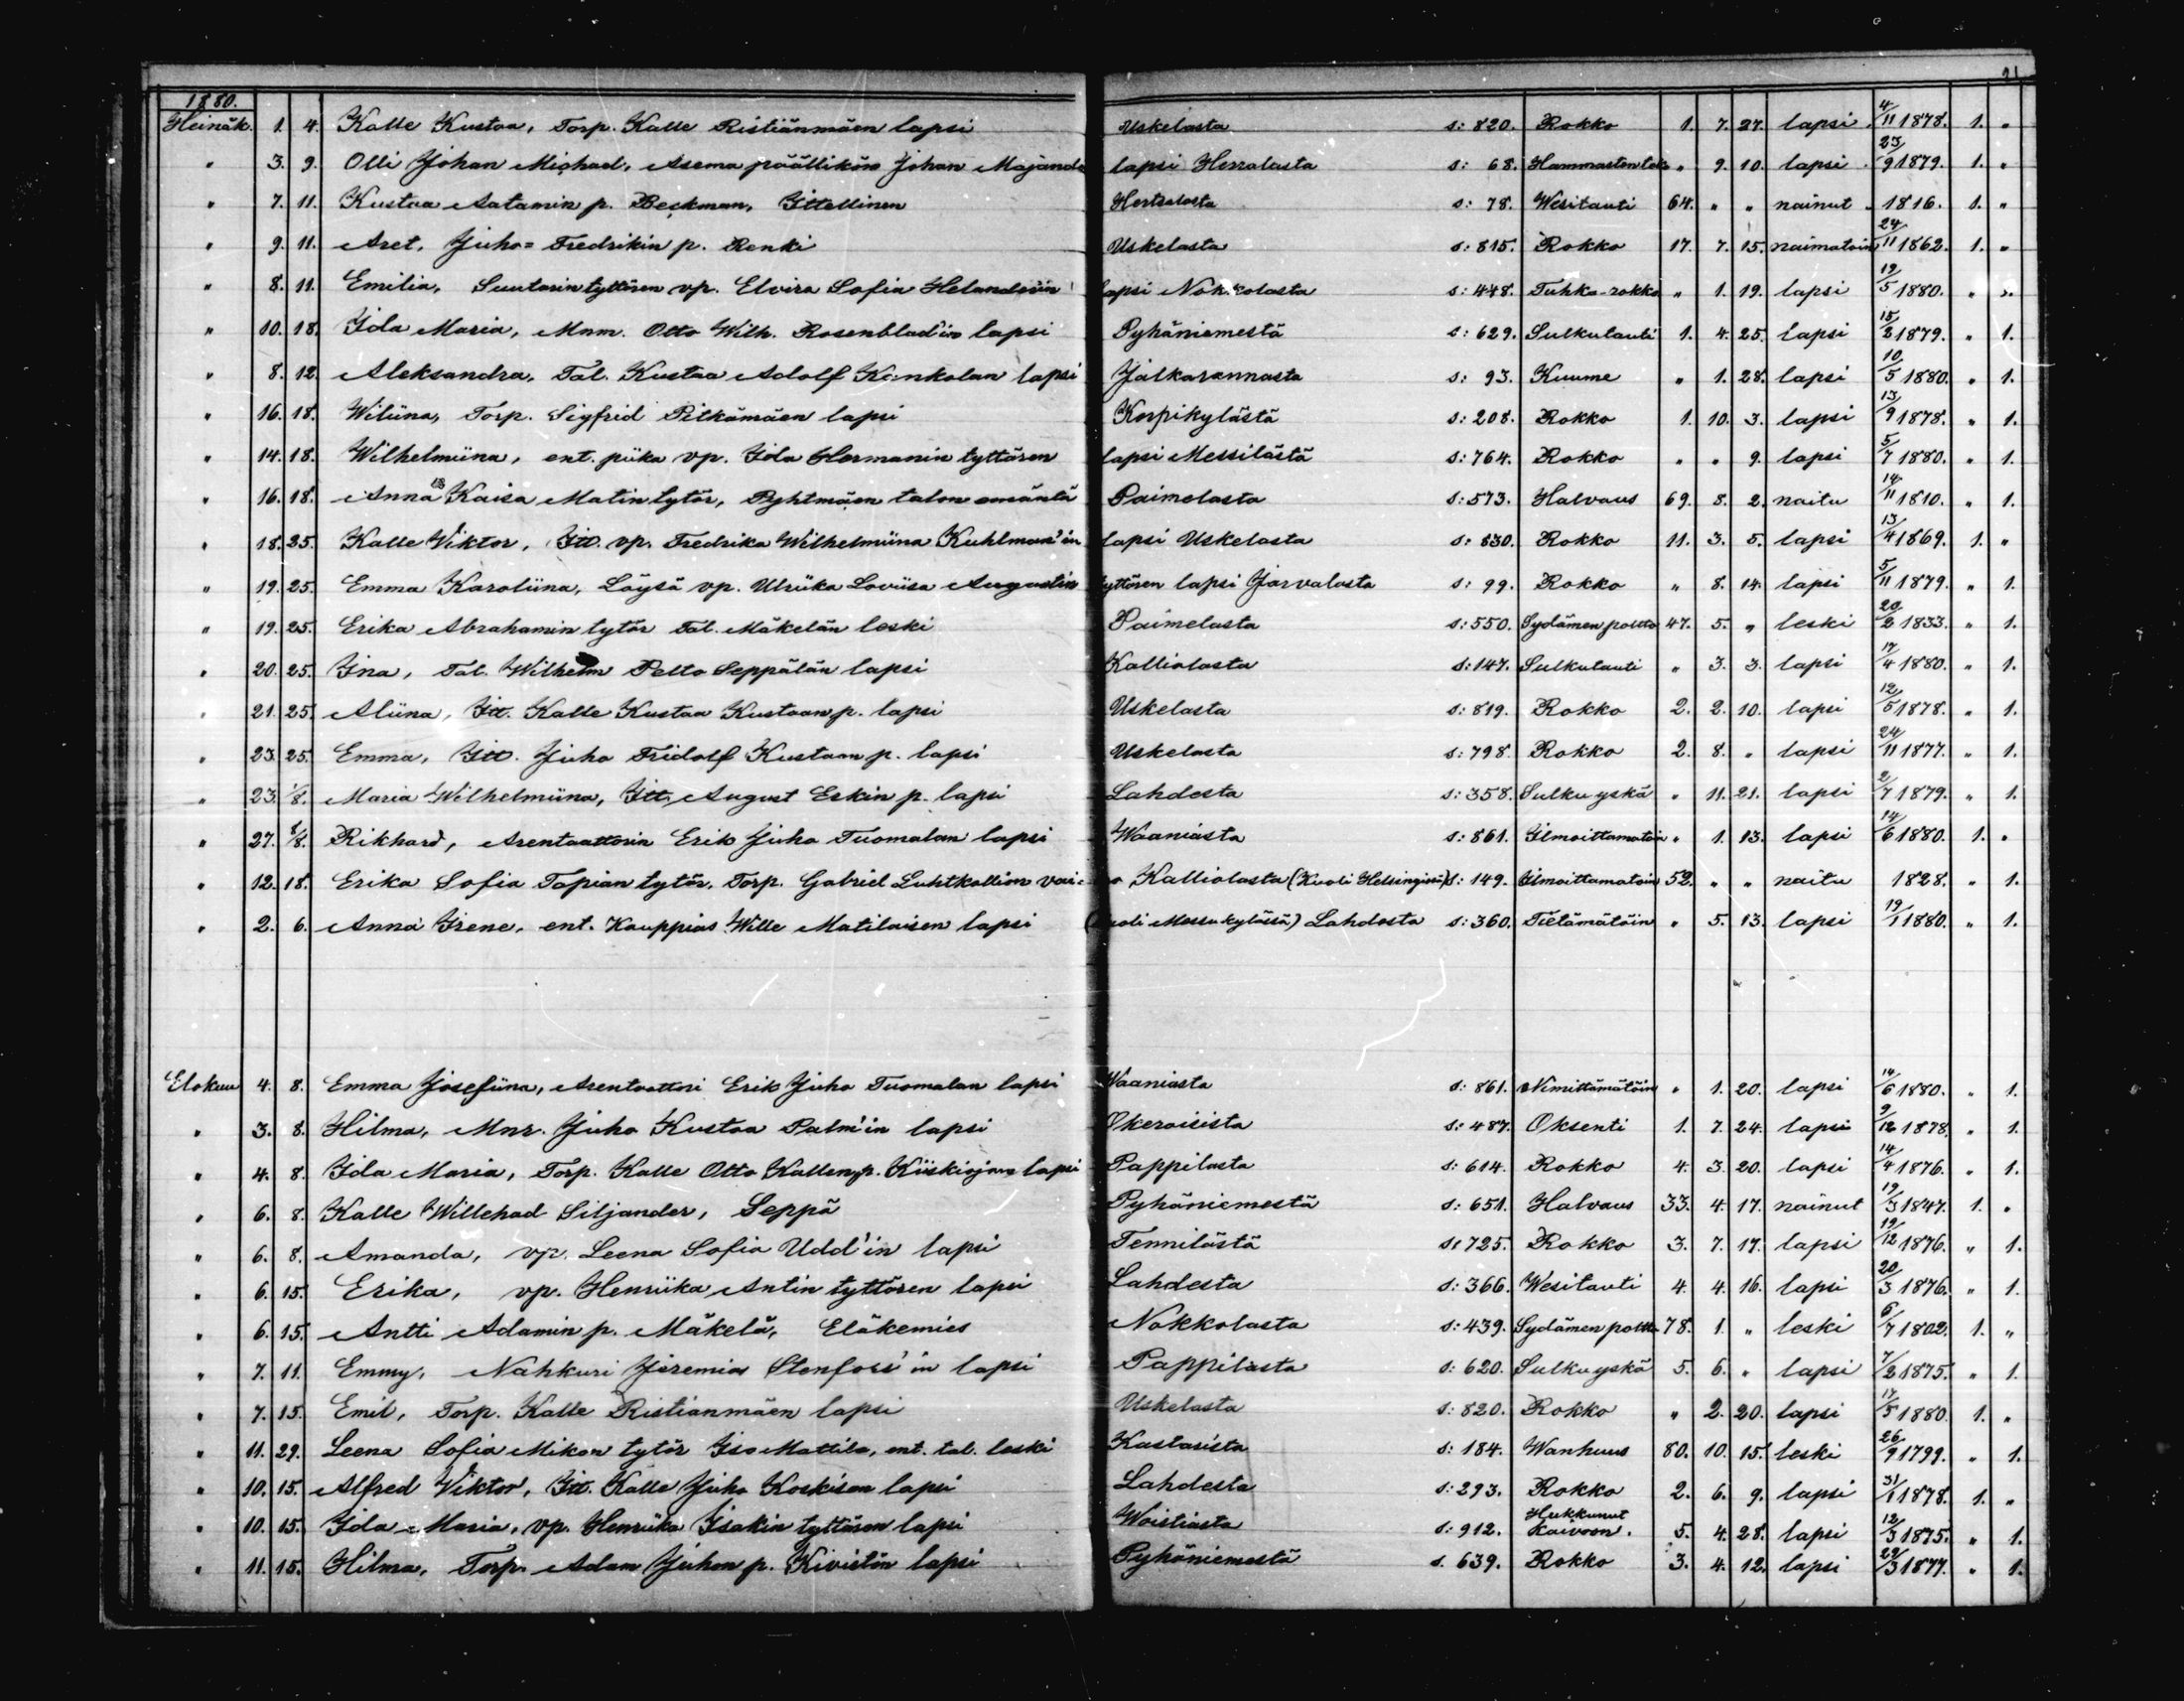 21
1880.
Heinäk. 1. 4. Kalle Kustaa, Torp. Kalle Ristiänmäen lapsi Uskelasta s: 820. Rokko 1. 7. 27. lapsi 4/11 1878. 1. "
" 3. 9. Olli Johan Michael, Asema päällikön Johan Majande lapsi Herralasta s: 68. Hammasten tek " 9. 10. lapsi 23/9 1879. 1. "
" 7. 11. Kustaa Aatamin p. Beckman, Ittellinen Hertsalasta s: 78. Wesitauti 64. " " nainut 1816. 1. "
" 9. 11. Aret, Juho= Fredrikin p. Renki Uskelasta s: 815. Rokko 17. 7. 15. naimatoin 24/11 1862. 1. "
" 8. 11. Emilia, Suutarin tyttären vp. Elvira Sofia Helanderin lapsi Nokkolasta s: 448. Tuhka-rokko " 1. 19. lapsi 19/5 1880. " 1.
" 10. 18. Ida Maria, Mnm. Otto Wilh. Rosenblad'in lapsi Pyhäniemestä s: 629. Sulkutauti 1. 4. 25. lapsi 15/2 1879. " 1.
" 8. 12. Aleksandra, Tal. Kustaa Adolf Kankolan lapsi Jalkarannasta s: 93. Kuume " 1. 28. lapsi 10/5 1880. " 1.
" 16. 18. Wiliina, Torp. Sigfrid Pitkämäen lapsi Korpikylästä s: 208. Rokko 1. 10. 3. lapsi 13/9 1878. " 1.
" 14. 18. Wilhelmiina, ent. piika vp. Ida Hermanin tyttären lapsi Messilästä s: 764. Rokko " " 9. lapsi 5/7 1880. " 1.
" 16. 18. Anna Kaisa Matin tytär, Pyhtmäen talon emäntä Paimelasta s: 573. Halvaus 69. 8. 2. naitu 14/11 1810. " 1.
" 18. 25. Kalle Viktor, Itt. vp. Fredrika Wilhelmiina Kuhlman'in lapsi Uskelasta s: 830. Rokko 11. 3. 5. lapsi 13/4 1869. 1. "
" 19. 25. Emma Karoliina, Löysä vp. Ulriika Loviisa Augustin tyttären lapsi Järvalasta s: 99. Rokko " 8. 14. lapsi 5/11 1879. " 1.
" 19. 25. Erika Abrahamin tytär Tal. Mäkelän leski Paimelasta s: 550. Sydämen poltto 47. 5. " leski 20/2 1833. " 1.
" 20. 25. Ina, Tal. Wilhelm Pelto Seppälän lapsi Kalliolasta s: 147. Sulkutauti " 3. 3. lapsi 17/4 1880. " 1.
" 21. 25. Aliina, Itt. Kalle Kustaa Kustaan p. lapsi Uskelasta s: 819. Rokko 2. 2. 10. lapsi 12/5 1878. " 1.
" 23. 25. Emma, Itt. Juho Fridolf Kustaan p. lapsi Uskelasta s: 798. Rokko 2. 8. " lapsi 24/11 1877. " 1.
" 23. 1/8. Maria Wilhelmiina, Itt. August Eskin p. lapsi Lahdesta s: 358. Sulku yskä " 11. 21. lapsi 2/7 1879. " 1.
" 27. 8/8. Rikhard, Arentaattorin Erik Juho Tuomalan lapsi Waaniasta s: 861. Ilmoittamatoin " 1. 13. lapsi 14/6 1880. 1. "
" 12. 18. Erika Sofia Tapian tytär, Torp. Gabriel Luhtkallion vai= o Kalliolasta (Kuoli Helsingissä) s: 149. Ilmoittamatoin 52. " " naitu 1828. " 1.
" 2. 6. Anna Irene, ent. Kauppias Wille Matilaisen lapsi (Kuoli Messukylässä) Lahdesta s: 360. Tietämätöin " 5. 13. lapsi 19/1 1880. " 1.
Elokuu 4. 8. Emma Josefiina, Arentaattori Erik Juho Tuomalan lapsi Waaniasta s: 861. Nimittämätöin " 1. 20. lapsi 14/6 1880. " 1.
" 3. 8. Hilma, Mnr. Juho Kustaa Palm'in lapsi Okeroisista s: 487. Oksenti 1. 7. 24. lapsi 9/12 1878. " 1.
" 4. 8. Ida Maria, Torp. Kalle Otto Kallen p. Kiiskiojan lapsi Pappilasta s: 614. Rokko 4. 3. 20. lapsi 14/4 1876. " 1.
" 6. 8. Kalle Willehad Siljander, Seppä Pyhäniemestä s: 651. Halvaus 33. 4. 17. nainut 19/3 1847. 1. "
" 6. 8. Amanda, vp. Leena Sofia Udd'in lapsi Tennilästä s: 725. Rokko 3. 7. 17. lapsi 19/12 1876. " 1.
" 6. 15. Erika, vp. Henriika Antin tyttären lapsi Lahdesta s: 366. Wesitauti 4. 4. 16. lapsi 20/3 1876. " 1.
" 6. 15. Antti Adamin p. Mäkelä, Eläkemies Nokkolasta s: 439. Sydämen poltto 78. 1. " leski 6/7 1802. 1. "
" 7. 11. Emmy, Nahkuri Jeremias Stenfors'in lapsi Pappilasta s: 620. Sulku yskä 5. 6. " lapsi 7/2 1875. " 1.
" 7. 15. Emil, Torp. Kalle Ristianmäen lapsi Uskelasta s: 820. Rokko " 2. 20. lapsi 17/5 1880. 1. "
" 11. 29. Leena Sofia Mikon tytär Iso Mattila, ent. tal. leski Kastarista s: 184. Wanhuus 80. 10. 15. leski 26/9 1799. " 1.
" 10. 15. Alfred Viktor, Itt. Kalle Juho Koskisen lapsi Lahdesta s: 293. Rokko 2. 6. 9. lapsi 31/1 1878. 1. "
" 10. 15. Ida Maria, vp. Henriika Isakin tyttären lapsi Woistiasta s: 912. Hukkunut Kaivoon. 5. 4. 28. lapsi 12/3 1875. " 1.
" 11. 15. Hilma, Torp. Adam Juhon p. Kivistön lapsi Pyhäniemestä s. 639. Rokko 3. 4. 12. lapsi 29/3 1877. " 1.